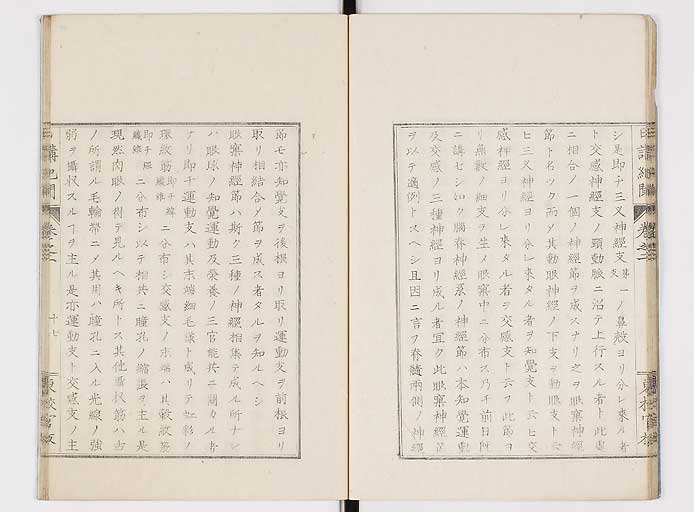 シ是即チ三叉神經支第一ノ鼻殻ヨリ分レ來ル者
ト交感神經支ノ頸動脈ニ沿テ上行スル者ト此處
ニ相合ノ一個ノ神經節ヲ成スナリ之ヲ眼窠神經
節ト名ツク而ノ其動眼神經ノ下支ヲ動眼支ト云
ヒ三叉神經ヨリ分レ來タル者ヲ知覺支ト云ヒ交
感神經ヨリ分レ來タル者ヲ交感支ト云フ此節ヨ
リ無數ノ細支ヲ生ノ眼窠中ニ分布ス乃チ前日既
ニ講セシ如ク膓脊神經系ノ神經節ハ本知覺運動
及交感ノ三種神經ヨリ成ル者宜ク此眼窠神經節
ヲ以テ適例トスヘシ且因ニ言フ脊髓兩側ノ神經
節モ亦知覺支ヲ後根ヨリ取リ運動支ヲ前根ヨリ
取リ相結合ノ節ヲ成ス者タルヲ知ルヘシ
眼窠神經節ハ斯ク三種ノ神經相集テ成ル所ナレ
ハ眼球ノ知覺運動及榮養ノ三官能共ニ關カル者
ナリ即チ運動支ハ其末端細毛樣ト成リテ虹彩ノ
環紋筋即チ緯纖維ニ分布シ交感支ノ末端ハ其散紋筋
即チ經纖維ニ分布シ以テ相共ニ瞳孔ノ縮張ヲ主ル是
現然肉眼ノ得テ見ルヘキ所トス其他攝收筋ハ古
ノ所謂ル毛輪帶ニノ其用ハ瞳孔ニ入ル光線ノ強
弱ヲ攝收スルヿヲ主ル是亦運動支ト交感支ノ主
日講紀聞
卷之二
十七